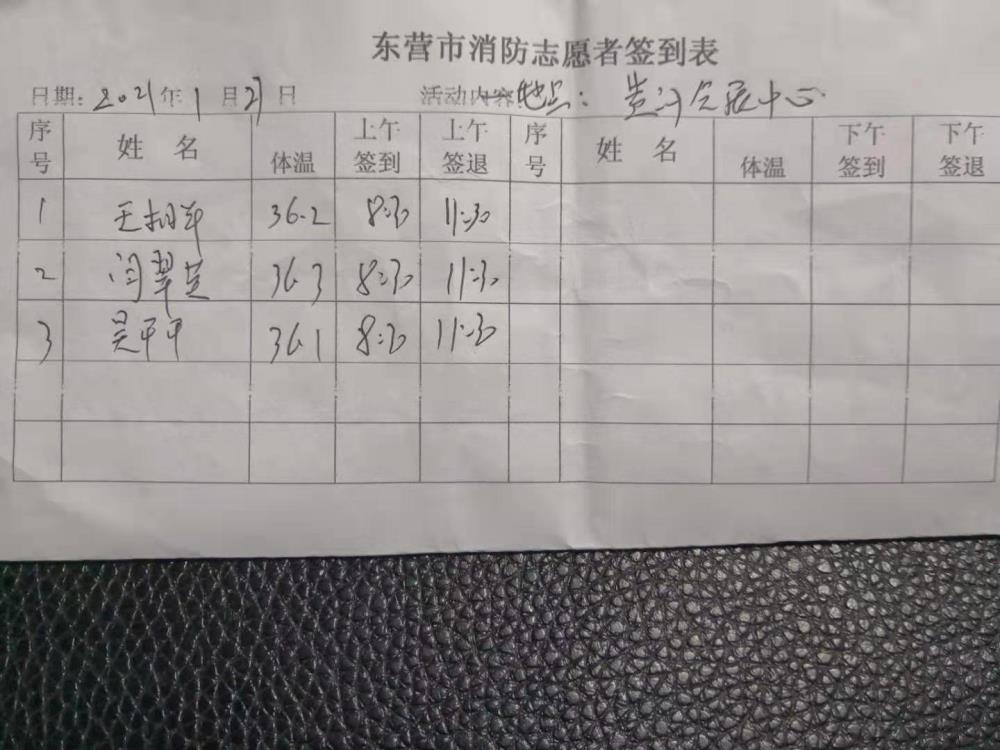 东营市消防志愿者签到表
日期: 2021年1月27日 活动内容 地点: 黄河会展中心
序号 姓名 体温 上午签到 上午签退 序号 姓名 体温 下午签到 下午签退
1 王 36.2 8:30 11:30
2 闫翠芝 36.3 8:30 11:30
3 吴平平 36.1 8:30 11:30